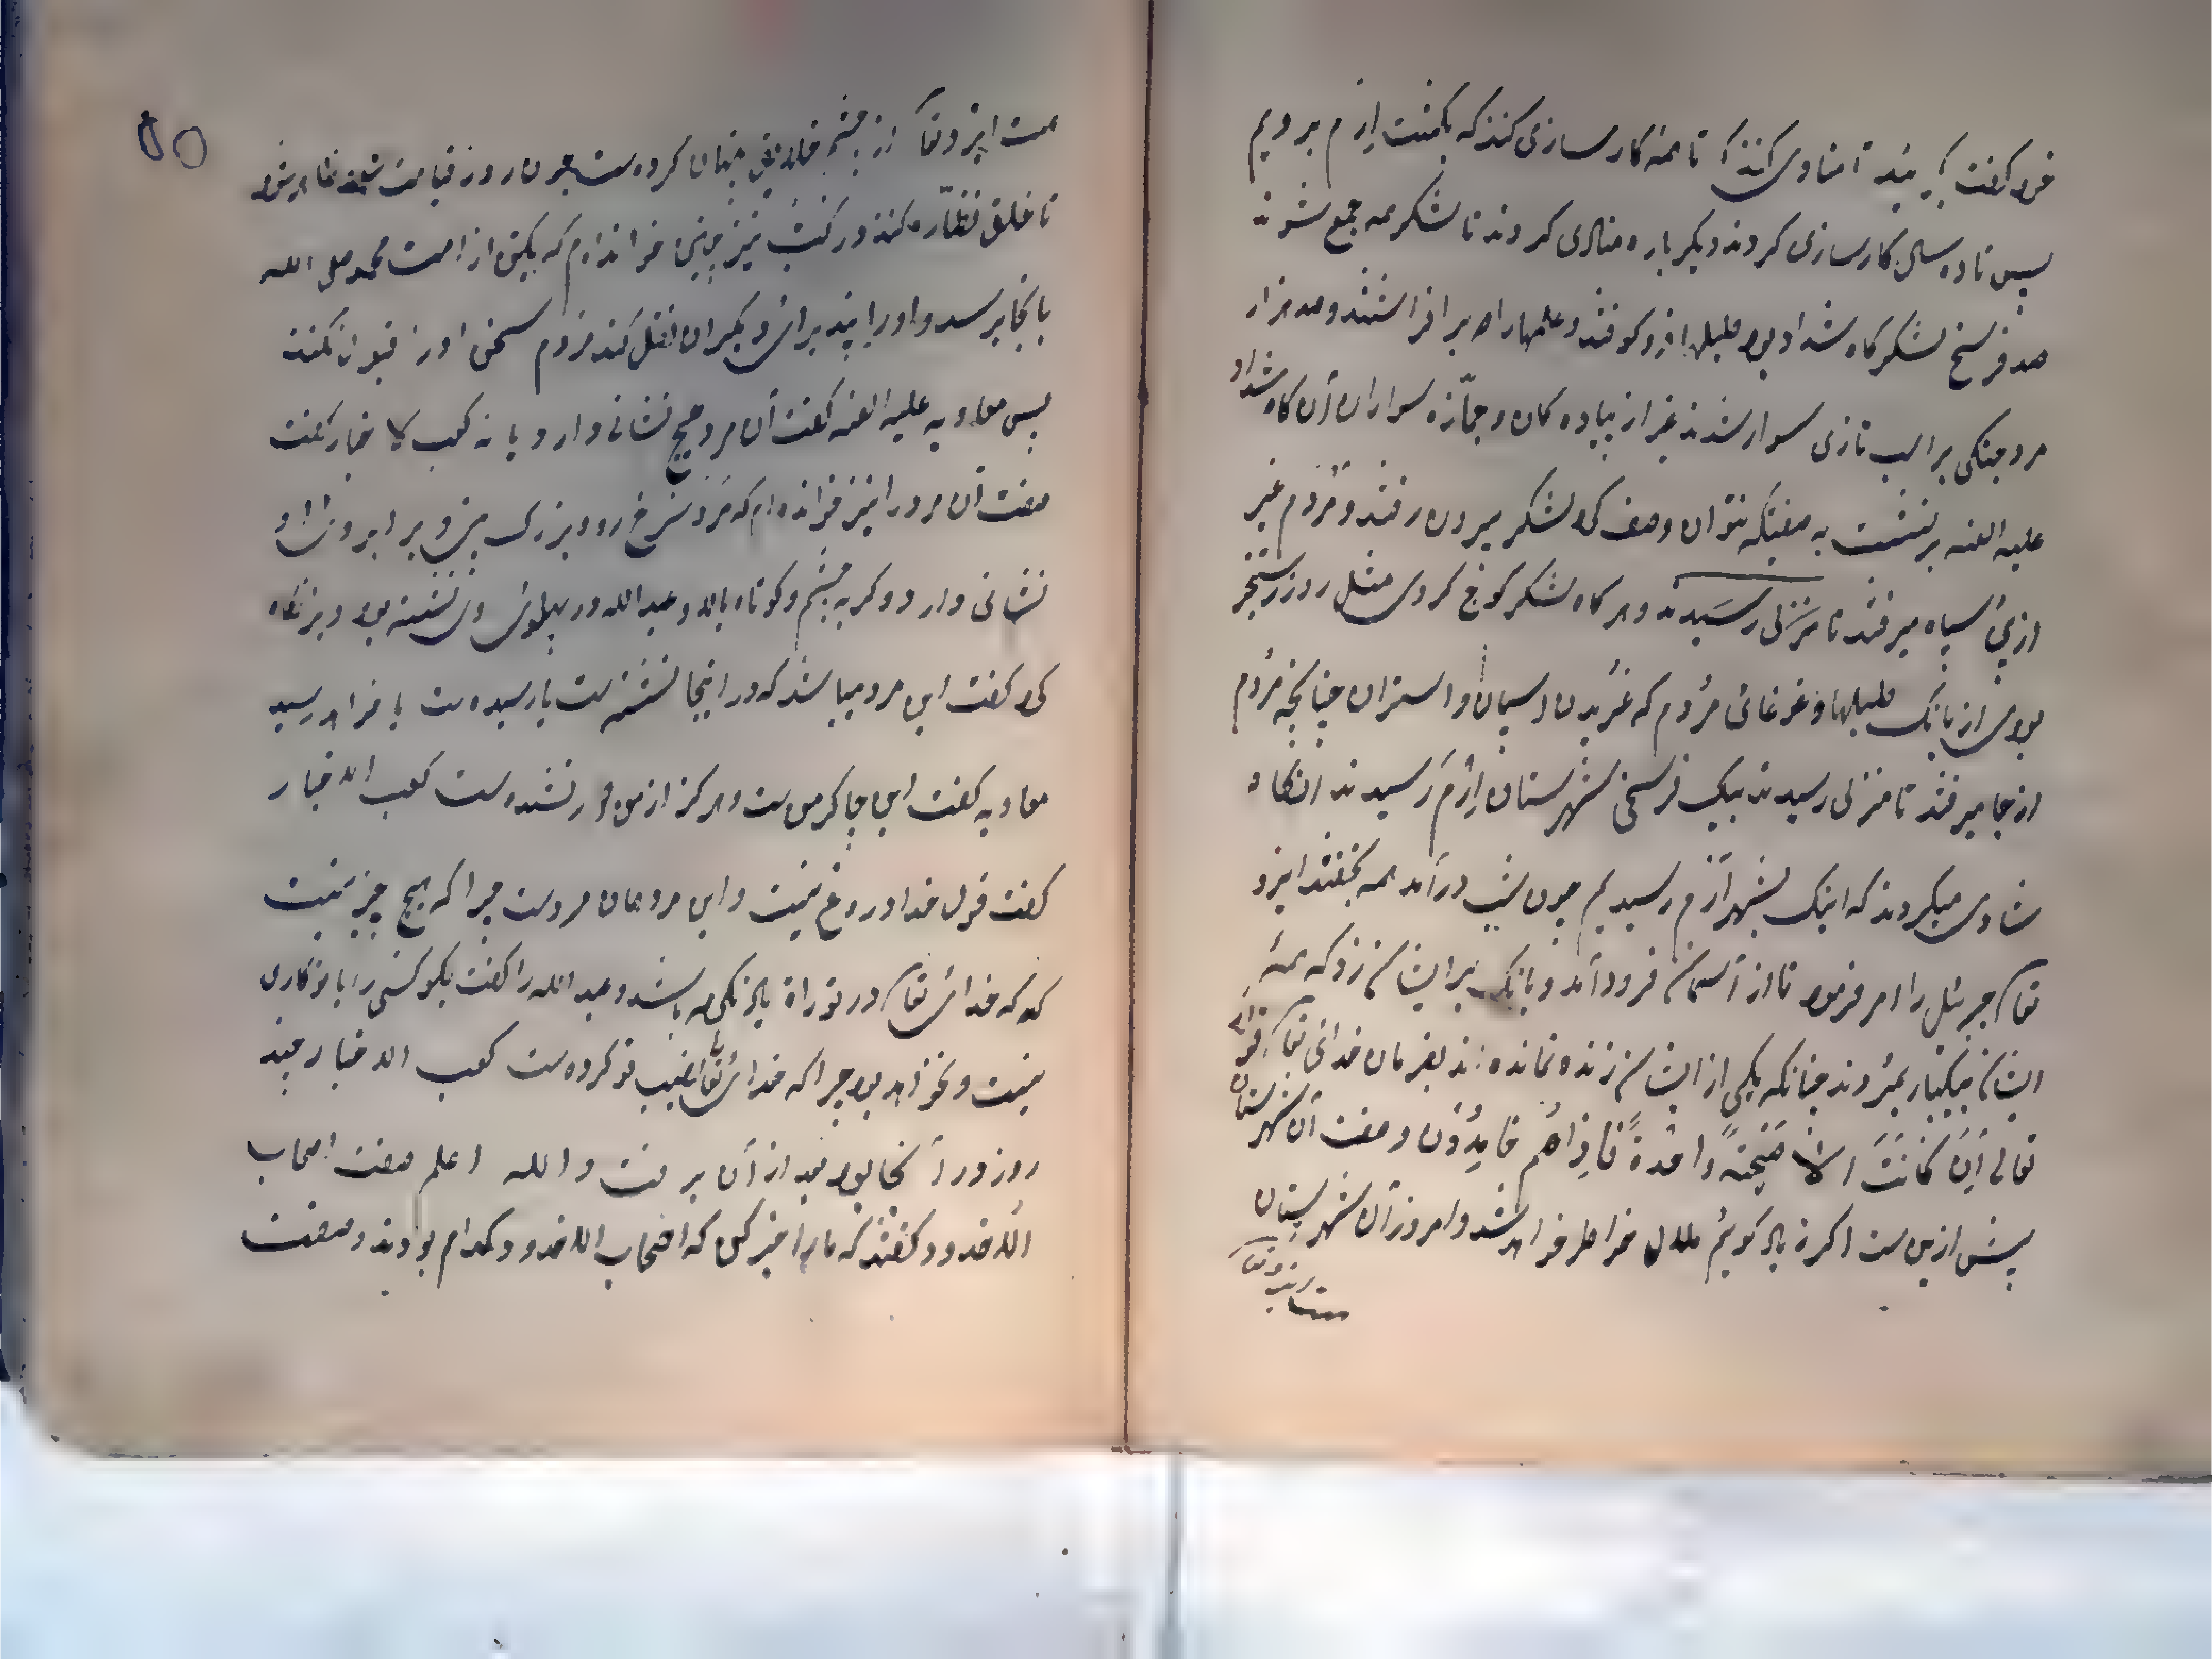 خود گفت تا منادی کنند تا همه کارسازی کنند که بگشت اِرم برویم
پس تا ده سال کارسازی کردند دیگر باره منادی کردند تا لشکر همه جمع شوند
صد فرسخ لشکرگاه شداد بود طبلها فرو کوفتند و علمها را بر افراشتند و صد هزار
مرد جنگی بر اسب تازی سوار شدند غیر از پیاده کان و جمّازه سواران آن گاه شداد
علیه العنه بر نشست به صفتیکه نتوان وصف کرد لشکر بیرون رفتند و مردم غیر
از پی سپاه میرفتند تا منزلی رسیدند و هر گاه لشکر کوچ کردی مثل روز رستخیز
بودی از بانک طبلها و غوغائی مردم که غریدن اسپان و استران چنانچه مردم
از جا میرفتند تا منزلی رسیدند بیک فرسخی شهرستان اِرم رسیدند انگاه
شادی میکردند که اینک بشهر اَرم رسیدیم چون شب درآمد همه بخفتند ایزد
تعا جبرئیل را امر فرمود تا از آسمان فرود آمد و بانگی بر ایشان زد که همهٔ
ایشان بیکبار بمردند چنانکه یکی از ایشان زنده نمانده بد بفرمان خدائی تعا قوله
تعالی اِنَ کانَتَ الا صَیحَتهً واحدةً فاِذا هُم خامِدُون و صفت آن شهرستان
پیش ازین ست اگر زیاد گوئیم ملال خواطر خواهد شد و امروز آن شهرستان
ست ایزد تعا
ست ایزد تعا از چشم خلایق پنهان کرده ست چون روز قیامت شود ظاهر شود
تا خلق نظّاره کنند در کتب نیز چنین خوانده ام که یکتن از امت محمد صلی الله
بانجا برسد و او را بیند برای دیگران نقل کند مردم سخن او را قبول نکنند
پس معاویه علیه العنه گفت آن مرد هیچ نشانی دارد یا نه کعب الا خبار گفت
صفت آن مرد را نیز خوانده ام که مرد سرخ رو و بزرگ بینی و بر ابروی او
نشانی دارد و گربه چشم و کوتاه بالا و عبد الله در پهلوی وی نشسته بود ویر نگاه
کرد گفت این مرد میباشد که در اینجا نشسته ست یا رسیده ست یا خواهد رسید
معاویه گفت این چاکر من ست و هرگز از من دور نشده ست کعب الا خبار
گفت قول خدا دروغ نیست و این مرد همان مرد ست چرا که هیچ چیز نیست
که که خدائی تعا در توراة یاد نکرده باشد و عبد الله را گفت بگو کسی را با تو کاری
نیست و نخواهد بود چرا که خدائی تعا نصیب تو کرده ست کعب الا خبار چند
روز در آنجا بود بعد از آن برفت و الله اعلم صفت اصحاب
الاخدود گفتند که ما را خبر کن که اصحاب الاخدود کدام بودند و صفت